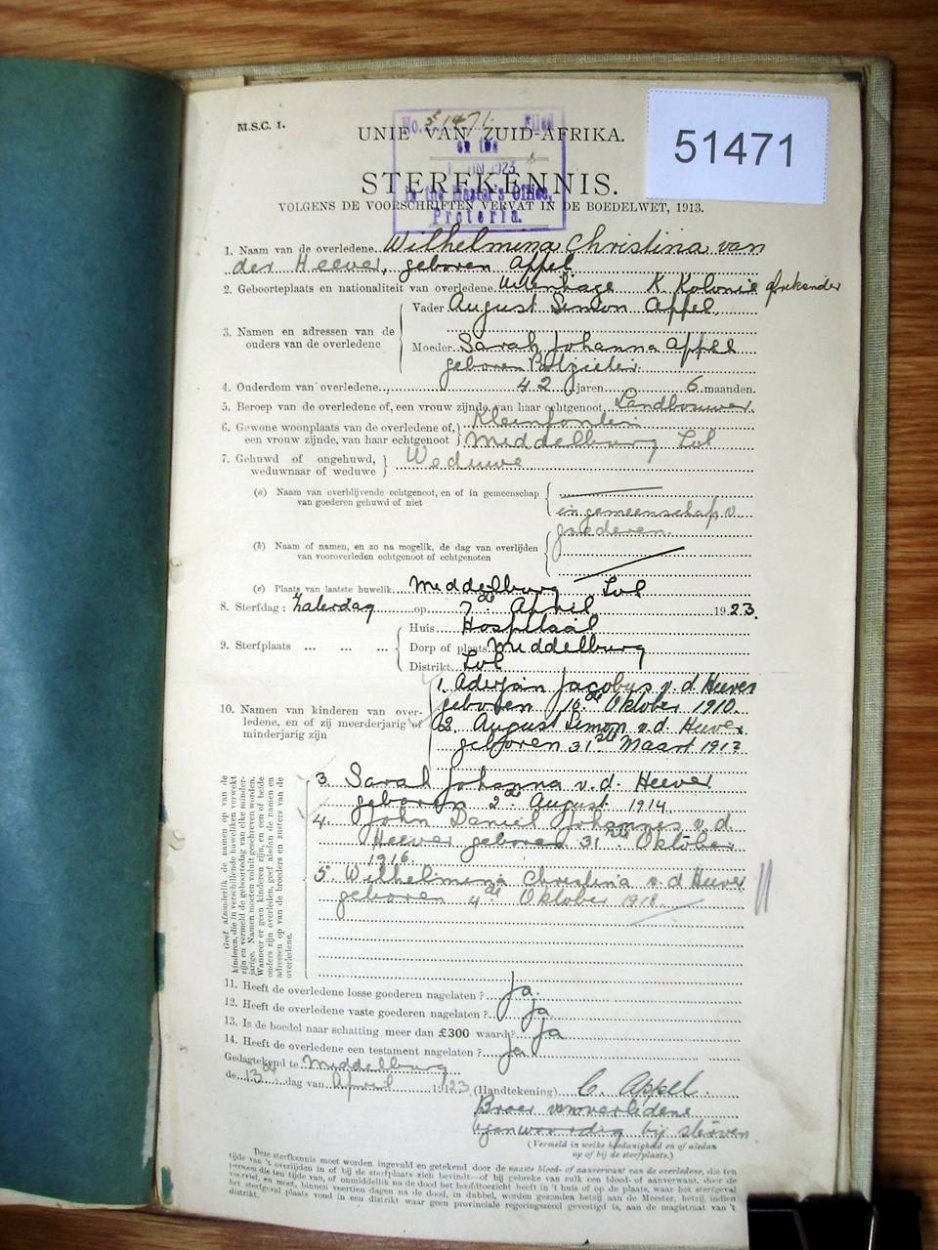 51471
M.S.C. 1.
No. 51471. Filed
on the
1923
in the Master's Office,
Pretoria.
UNIE VAN ZUID-AFRIKA.
STERFKENNIS.
VOLGENS DE VOORSCHRIFTEN VERVAT IN DE BOEDELWET, 1913.
1. Naam van de overledene Wilhelmina Christina van
der Heever, geboren Appel
2. Geboorteplaats en nationaliteit van overledene Uitenhage K. Kolonie afrikander
3. Namen en adressen van de ouders van de overledene
Vader August Simon Appel.
Moeder Sarah Johanna Appel
geboren Potgieter.
4. Ouderdom van overledene, 42 jaren 6 maanden.
5. Beroep van de overledene of, een vrouw zijnde, van haar echtgenoot Landbouwer
6. Gewone woonplaats van de overledene of, een vrouw zijnde, van haar echtgenoot
Kleinfontein
Middelburg Tvl
7. Gehuwd of ongehuwd, weduwnaar of weduwe
Weduwe
(a) Naam van overblijvende echtgenoot, en of in gemeenschap
van goederen gehuwd of niet
in gemeenschap v.
goederen.
(b) Naam of namen, en zo na mogelik, de dag van overlijden
van vooroverleden echtgenoot of echtgenoten
(c) Plaats van laatste huwelik Middelburg Tvl
8. Sterfdag: Zaterdag op 7de April 1923.
9. Sterfplaats ... ... ...
Huis Hospitaal
Dorp of plaats Middelburg
Distrikt Tvl
10. Namen van kinderen van overledene, en of zij meerderjarig of minderjarig zijn
1. Aderjain Jacobus v. d. Heever
geboren 10de Oktober 1910.
2. August Simon v. d. Heever
geboren 31ste Maart 1912
3. Sarah Johanna v. d. Heever
geboren 2de August 1914
4. John Daniel Johannes v. d.
Heever geboren 31ste Oktober
1916.
5. Wilhelmina Christina v. d. Heever
geboren 4de Oktober 1918.
Geef afzonderlik de namen op van de
kinderen, die in verschillende huweliken verwekt
zijn en vermeld de geboortedag van elke minder-
jarige. Namen moeten voluit geschreven worden.
Wanneer er geen kinderen zijn, en een of beide
ouders zijn overleden, geef alsdan de namen en
adressen op van de broeders en zusters van de
overledene.
11. Heeft de overledene losse goederen nagelaten? Ja.
12. Heeft de overledene vaste goederen nagelaten? Ja
13. Is de boedel naar schatting meer dan £300 waard? Ja
14. Heeft de overledene een testament nagelaten? Ja
Gedagtekend te Middelburg
de 13de dag van April 1923
(Handtekening) C. Appel.
Broer van overledene
tegenwoordig bij sterven.
(Vermeld in welke hoedanigheid en of aldaar
op of bij de sterfplaats.)
Deze sterfkennis moet worden ingevuld en getekend door de naaste bloed- of aanverwant van de overledene, die ten
tijde van 't overlijden in of bij de sterfplaats zich bevindt—of bij gebreke van zulk een bloed- of aanverwant, door de
persoon die ten tijde van, of onmiddellik na de dood het hoofdtoezicht heeft in 't huis of op de plaats, waar het sterfgeval
voorviel, en moet, binnen veertien dagen na de dood, in dubbel, worden gezonden hetzij aan de Meester, hetzij, indien
het sterfgeval plaats vond in een distrikt waar geen provinciale regeringszetel gevestigd is, aan de magistraat van 't
distrikt.